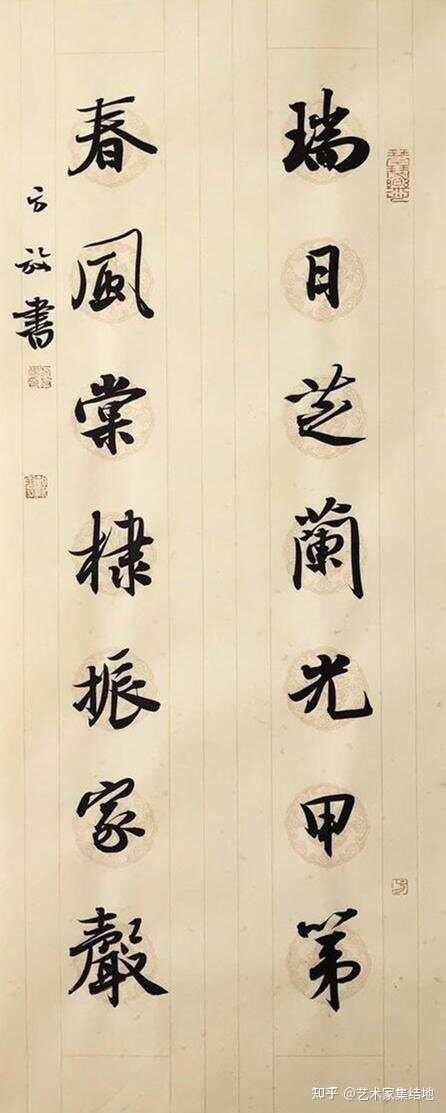 瑞日芝蘭光甲第
春風棠棣振家聲
方放書
知乎 @艺术家集结地